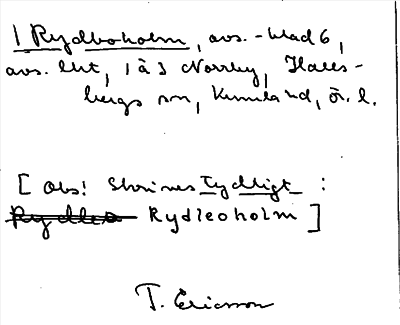 1 Rydboholm, avs. - blad 6,
avs. lht, 1 à 3 Norrby, Halls-
bergs sn, Kumla hd, Ör. l.
[ Obs! Skrives tydligt :
Rydle Rydleoholm ]
T. Ericsson